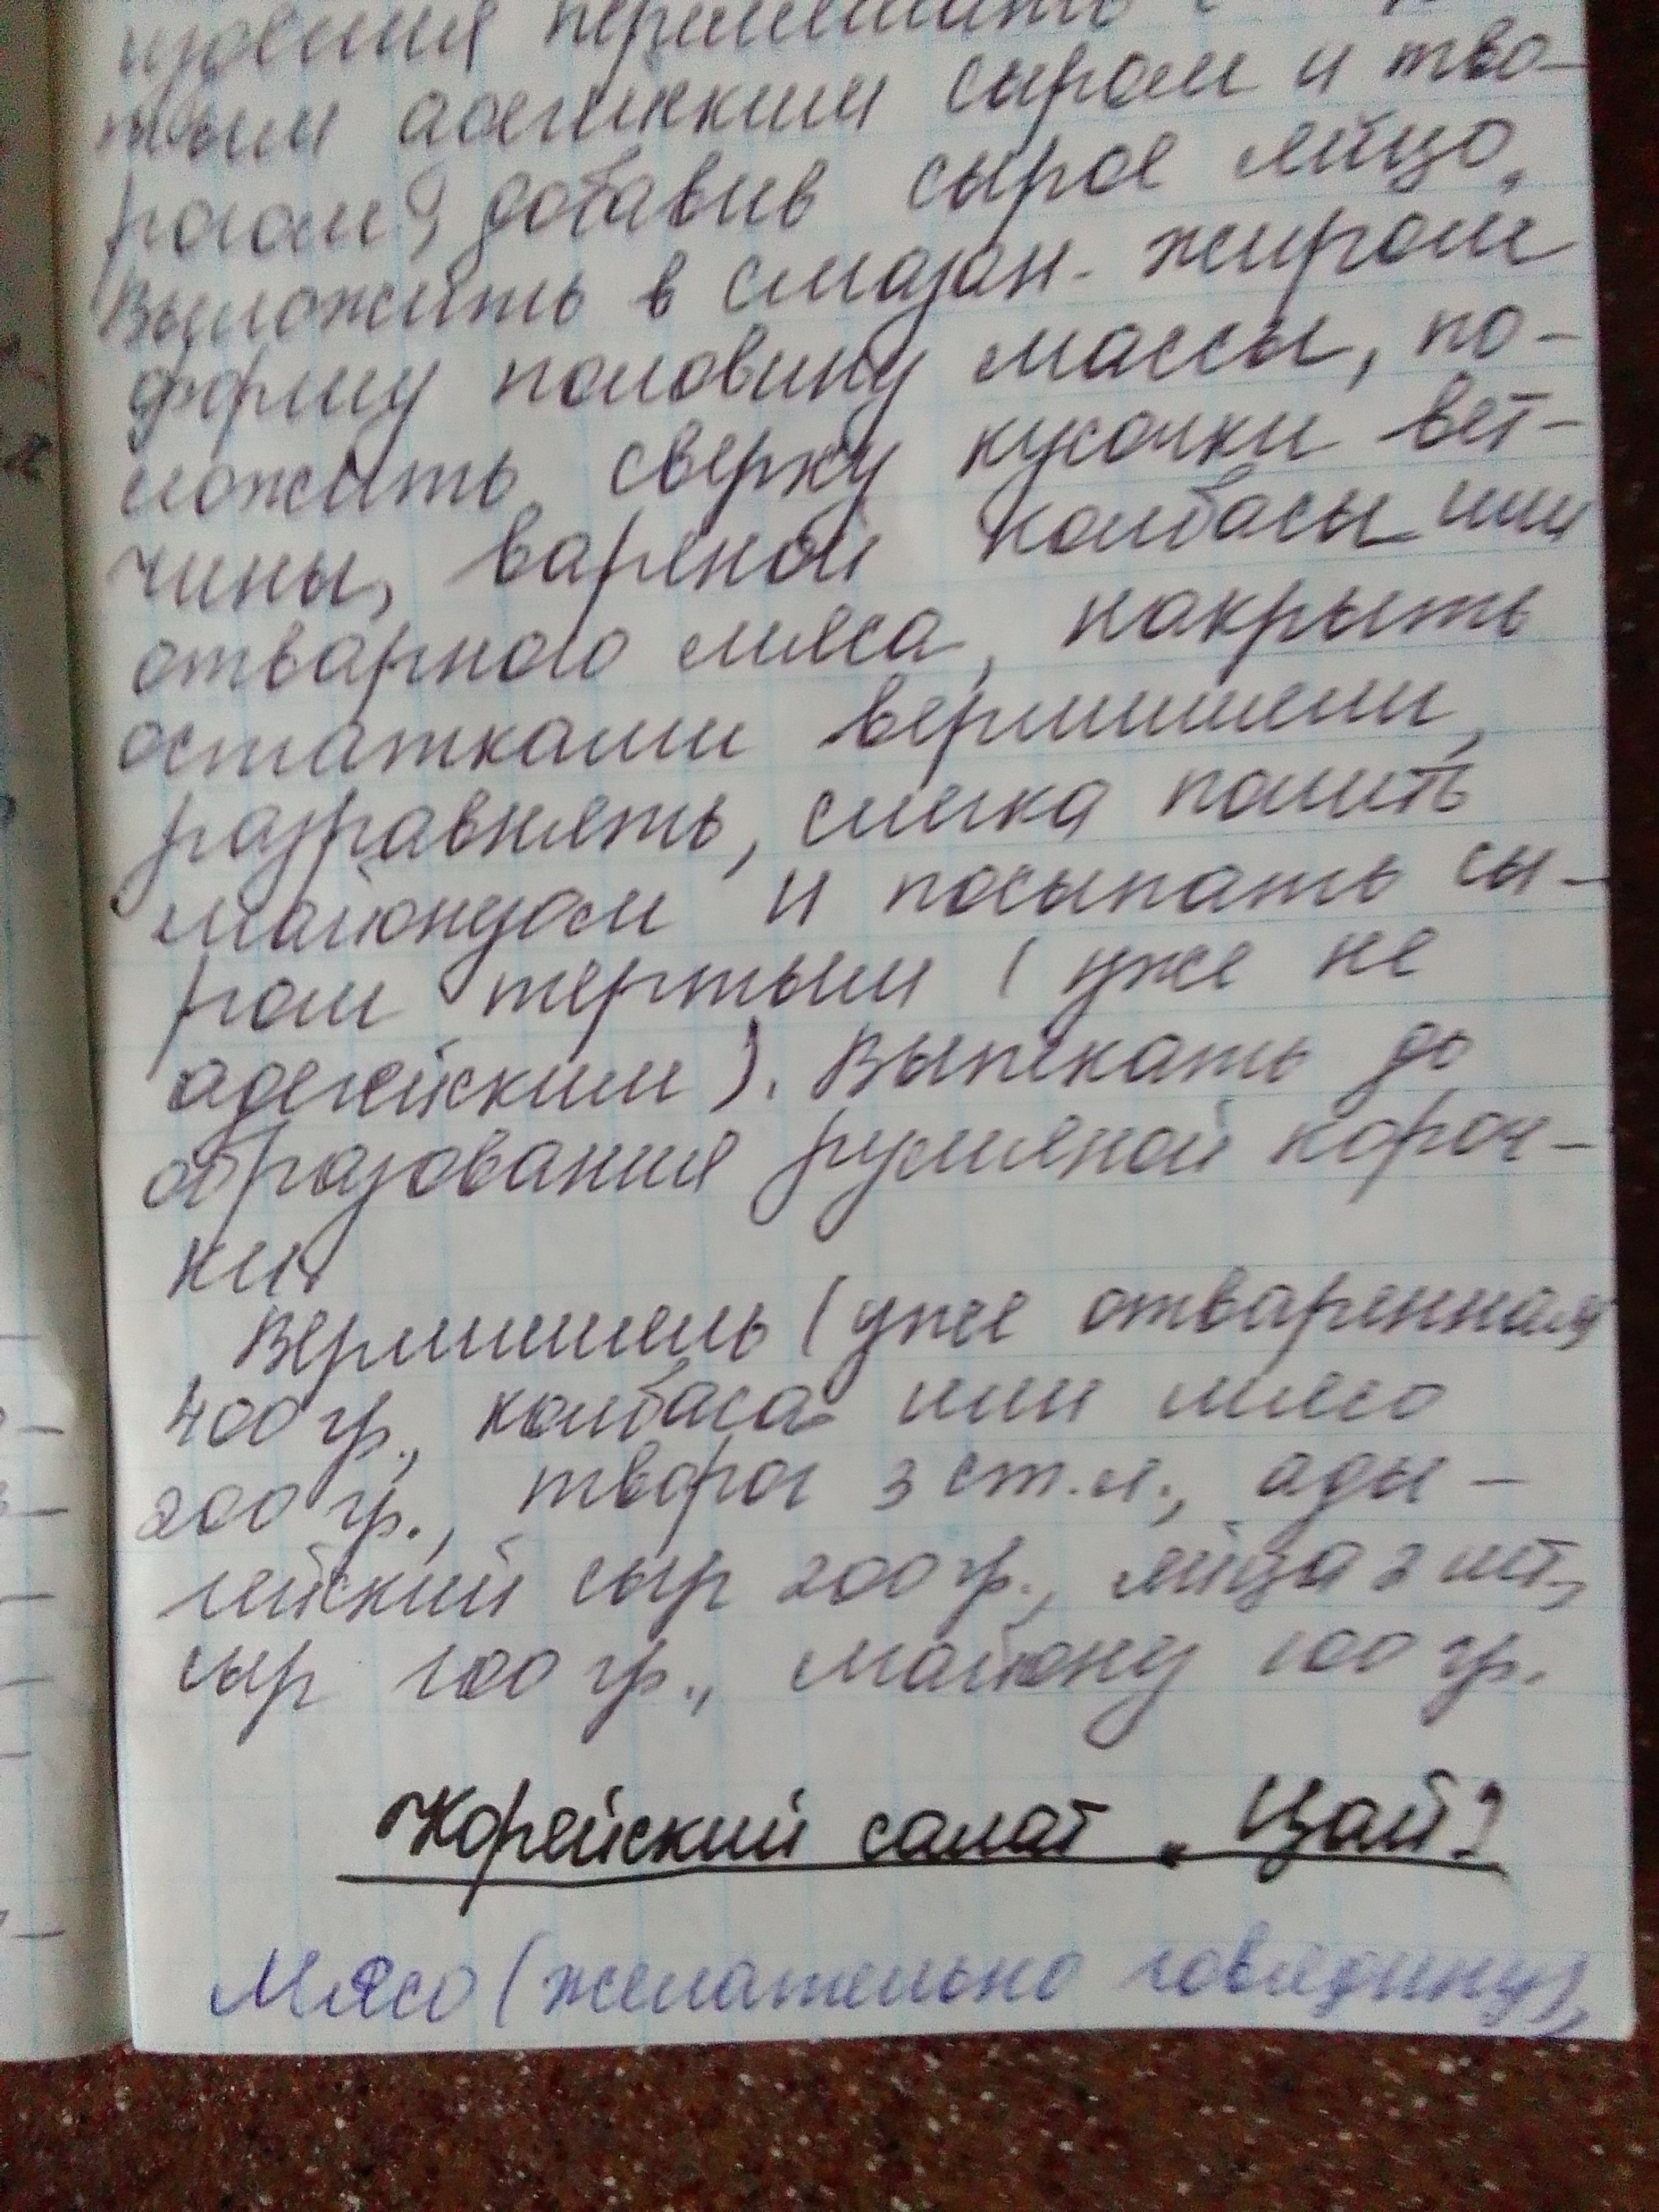 перемешать с
тым адегейским сыром и тво-
рогом, добавив сырое яйцо.
Выложить в смазан. жиром
форму половину массы, по-
ложить сверху кусочки вет-
чины, вареной колбасы или
отварного мяса, накрыть
остатками вермишели,
разравнять, слегка полить
майонезом и посыпать сы-
ром тертым (уже не
адегейским). Выпекать до
образования румяной короч-
ки.
Вермишель (уже отваренная
400 гр., колбаса или мясо
200 гр., творог 3 ст.л., ады-
гейский сыр 200 гр., яйца 2 шт,
сыр 100 гр., майонез 100 гр.
Корейский салат „Цай"
Мясо (желательно говядину),